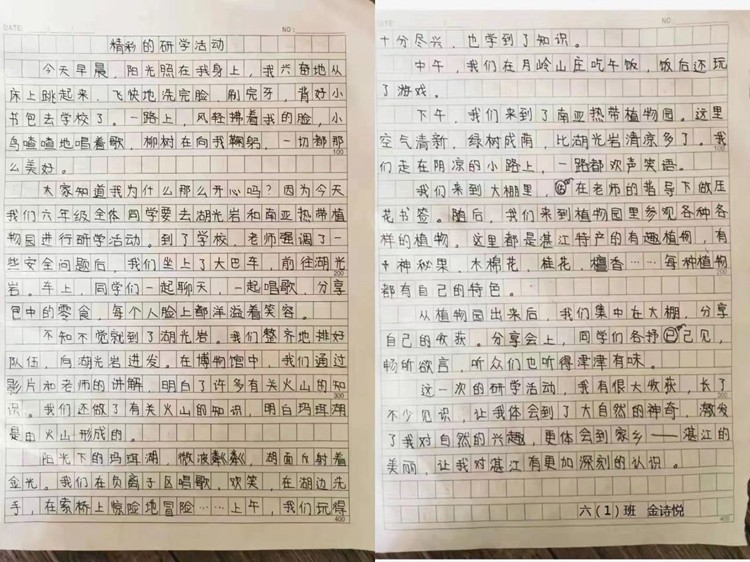 DATE:
NO:
精彩的研学活动
今天早晨，阳光照在我身上，我兴奋地从
床上跳起来，飞快地洗完脸，刷完牙，背好小
书包去学校了。一路上，风轻拂着我的脸，小
鸟喳喳地唱着歌，柳树在向我鞠躬，一切都那
么美好。
100
大家知道我为什么那么开心吗？因为今天
我们六年级全体同学要去湖光岩和南亚热带植
物园进行研学活动。到了学校，老师强调了一
些安全问题后，我们坐上了大巴车，前往湖光
200
岩。车上，同学们一起聊天，一起唱歌，分享
包中的零食，每个人脸上都洋溢着笑容。
不知不觉就到了湖光岩。我们整齐地排好
队伍，向湖光岩进发。在博物馆中，我们通过
影片和老师的讲解，明白了许多有关火山的知
识。我们还做了有关火山的知识，明白玛珥湖
300
是由火山形成的。
阳光下的玛珥湖，微波粼粼，湖面反射着
金光。我们在负离子区唱歌，欢笑，在湖边洗
手，在索桥上惊险地冒险……上午，我们玩得
400
DATE:
NO:
十分尽兴，也学到了知识。
中午，我们在月岭山庄吃午饭，饭后还玩
了游戏。
下午，我们来到了南亚热带植物园。这里
空气清新，绿树成南，比湖光岩清凉多了。我
100
们走在阴凉的小路上，一路都欢声笑语。
我们来到大棚里，在老师的指导下做压
花书签。随后，我们来到植物园里参观各种各
样的植物。这里都是湛江特产的有趣植物，有
神秘果，木棉花，桂花，檀香……每种植物
200
都有自己的特色。
从植物园出来后，我们集中在大棚，分享
自己的收获。分享会上，同学们各抒己见，
畅所欲言，听众们也听得津津有味。
这一次的研学活动，我有很大收获，长了
不少见识，让我体会到了大自然的神奇，激发
300
了我对自然的兴趣，更体会到家乡——湛江的
美丽，让我对湛江有更加深刻的认识。
六（1）班 金诗悦
400